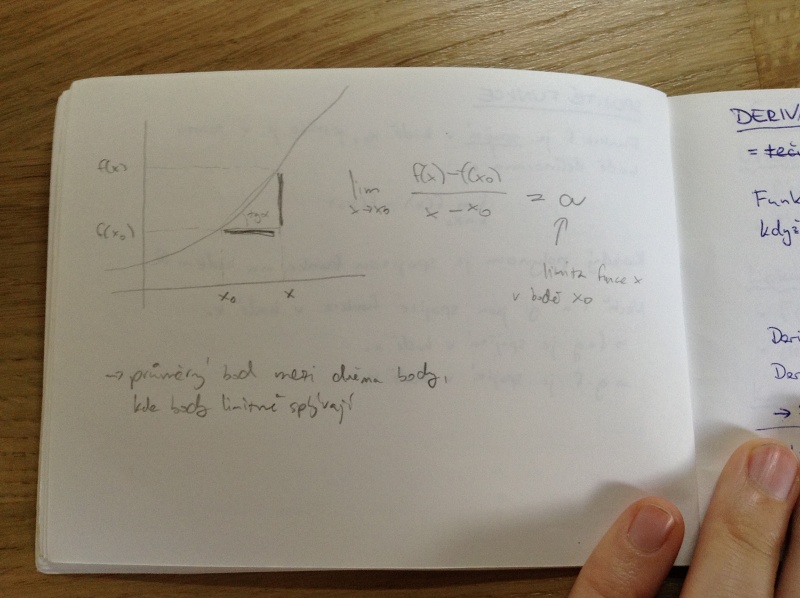 f(x)
f(x₀)
x₀ x
lim x→x₀ f(x)-f(x₀) / x - x₀ = a
↑
limita funce x
v bodě x₀
→ průměrný bod mezi dvěma body,
kde body limitně splývají
DERIV
=
Funk
když
Deri
Der
→